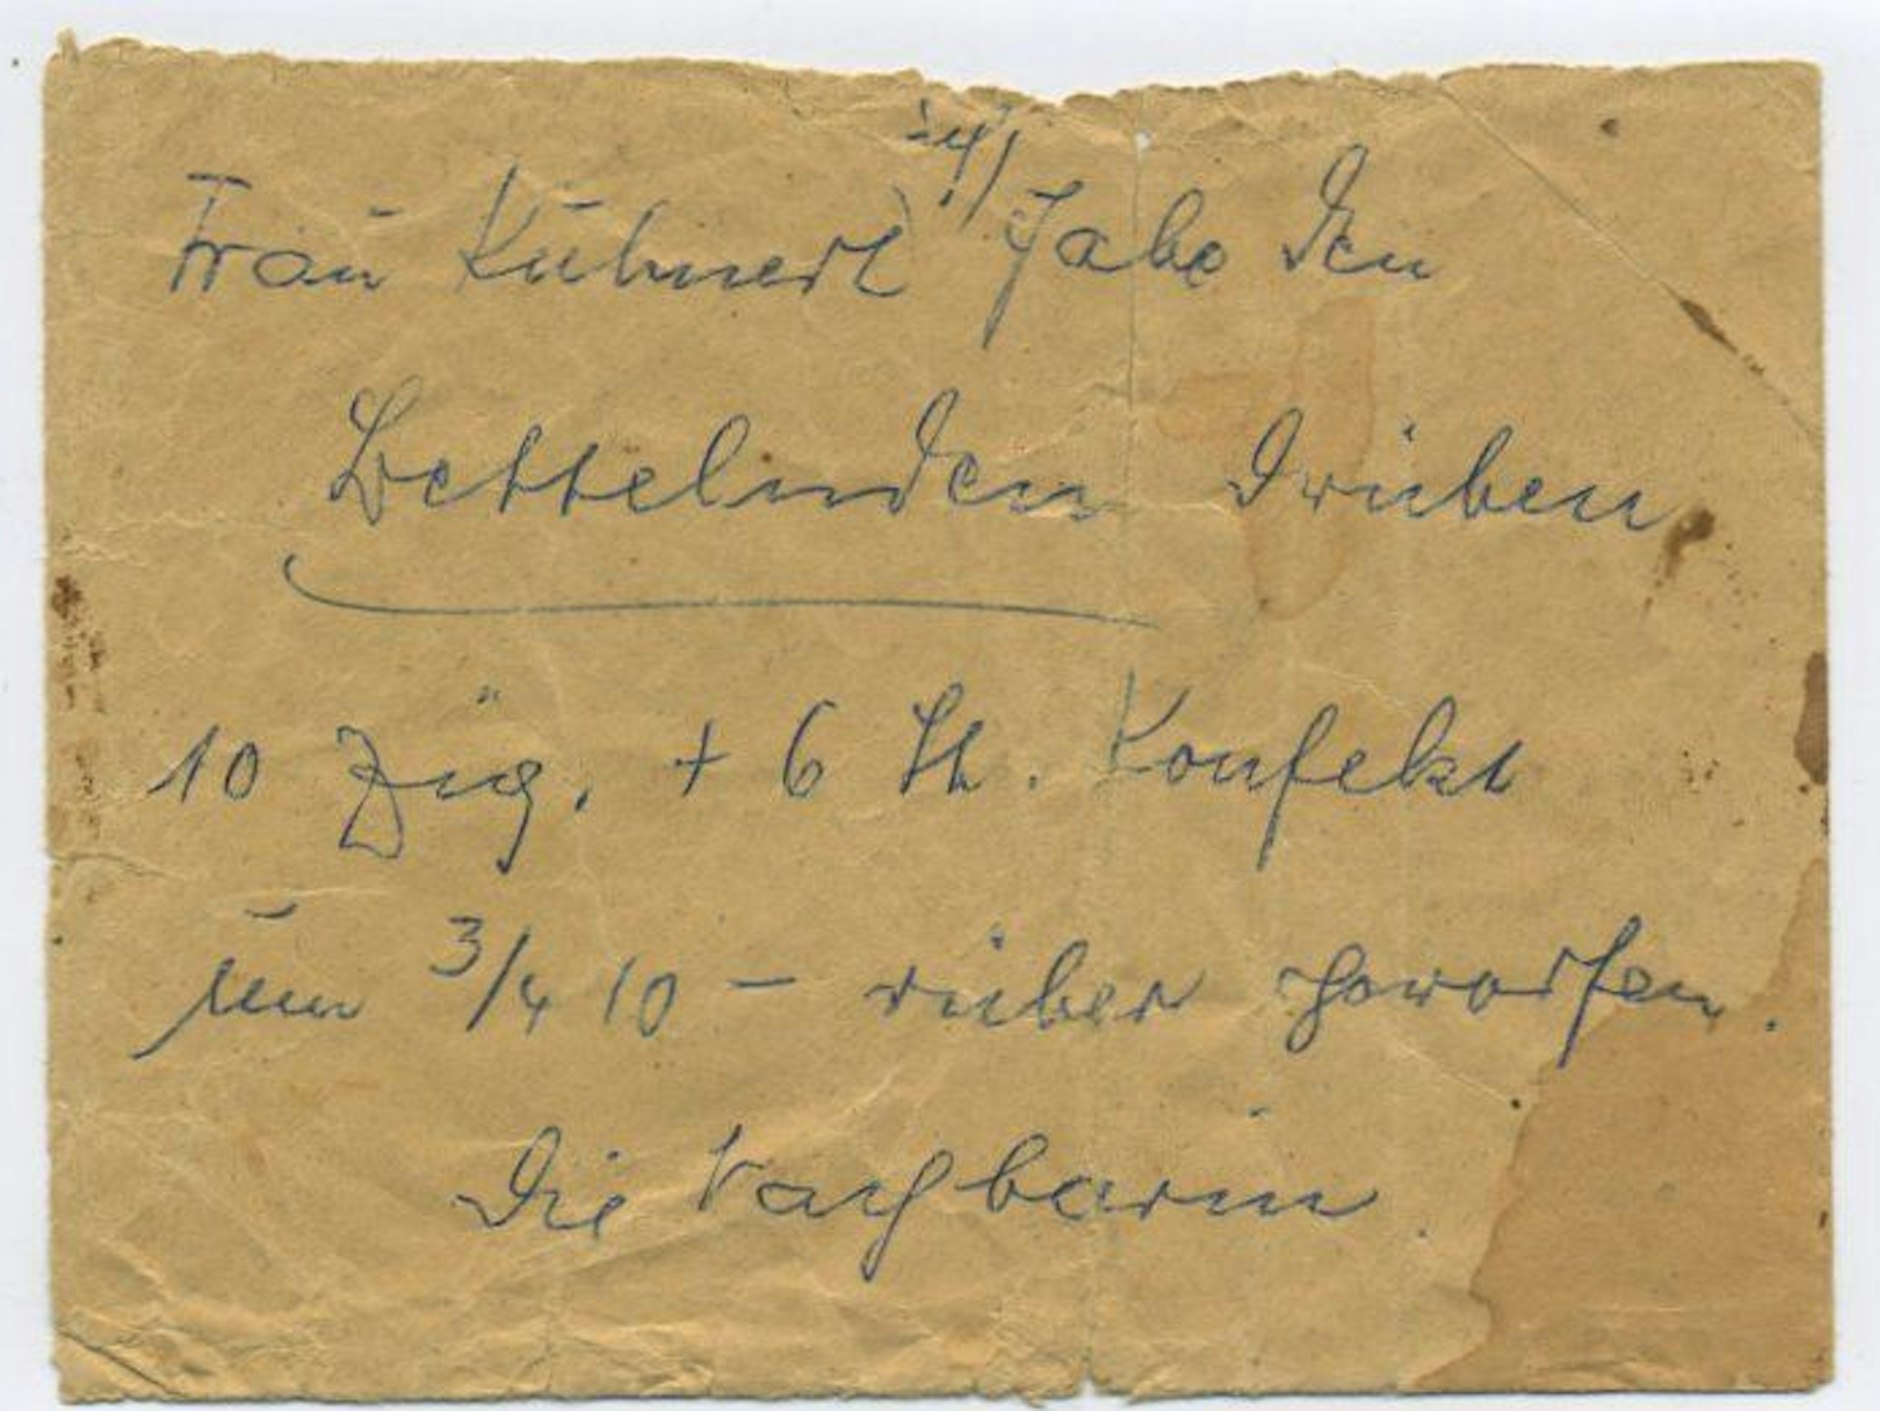 Frau Kühnert! Habe den
Bettelnden drüben
10 Zig. + 6 St. Konfekt
um 3/4 10 – rüber geworfen.
Die Nachbarin.